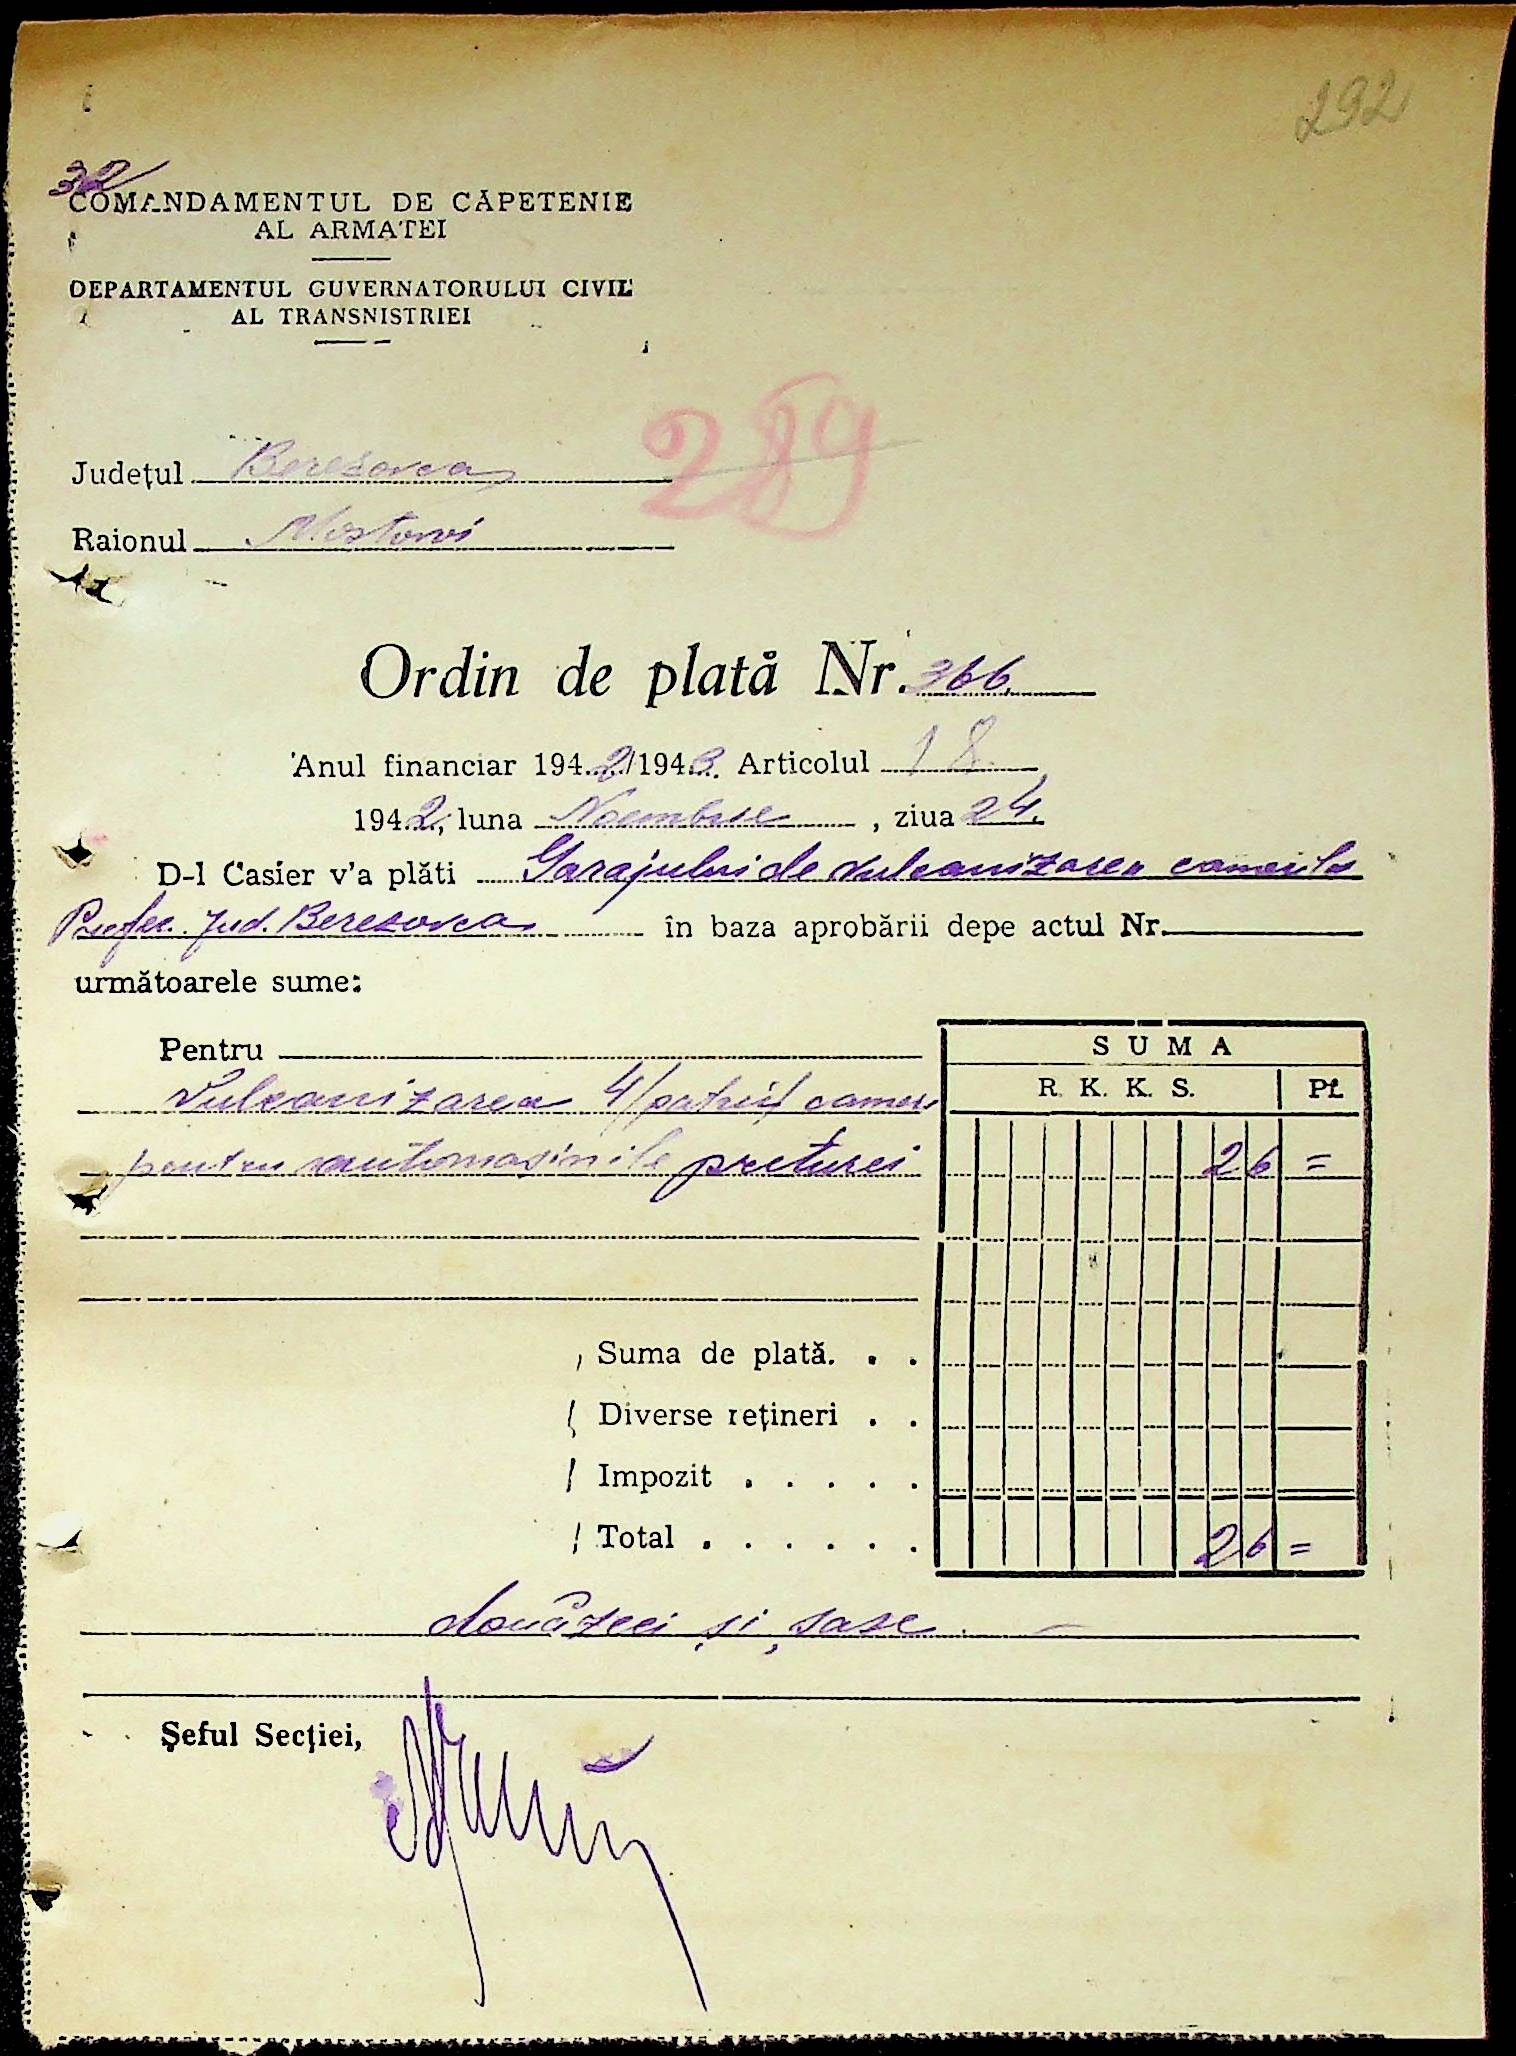 292
32
COMANDAMENTUL DE CĂPETENIE
AL ARMATEI
DEPARTAMENTUL GUVERNATORULUI CIVIL
AL TRANSNISTRIEI
289
Județul Beresovca
Raionul Mostovoi
Ordin de plată Nr. 366
Anul financiar 1942/1943. Articolul 18
1942, luna Noembrie, ziua 24.
D-l Casier v'a plăti Garajului de vulcanizarea camerile
Prefec. Jud. Beresovca în baza aprobării depe actul Nr.
următoarele sume:
Pentru
SUMA
R. K. K. S. Pf.
Vulcanizarea 4/patru/ camere
pentru automașinile preturei 26 =
Suma de plată. . .
Diverse rețineri . .
Impozit . . . . .
Total . . . . . . 26 =
douăzeci și șase
Șeful Secției,